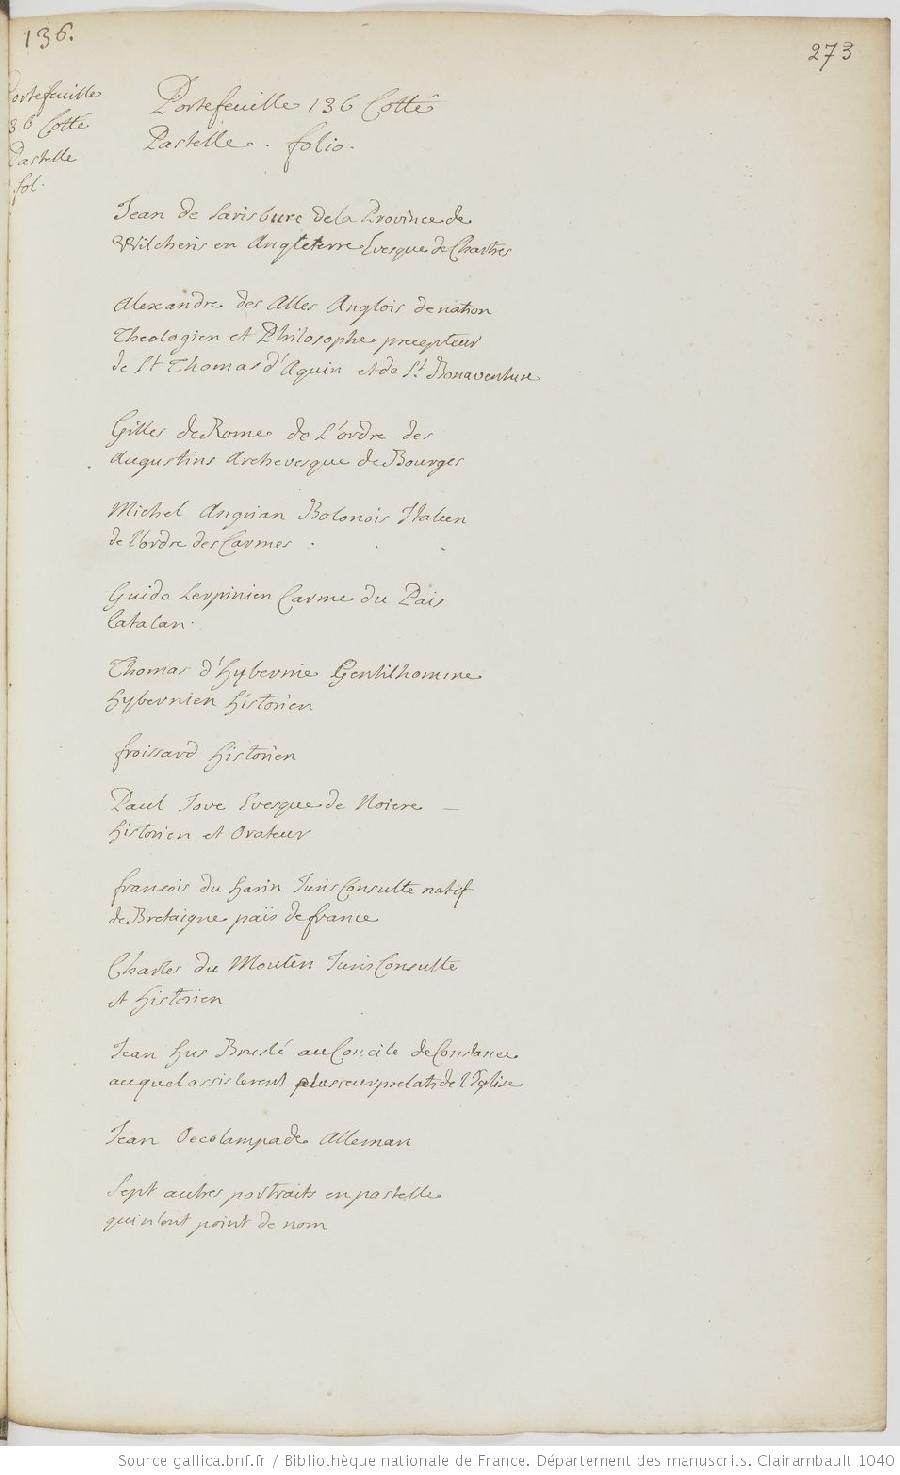 136.
273
Portefeuille
36 Cotté
Pastelle
fol.
Portefeuille 136 Cotté
Pastelle. folio.
Jean de Sarisbure de la Province de
Wilcheris en Angleterre Evesque de Chartres
Alexandre des Alles Anglois de nation
Theologien et Philosophe precepteur
de St Thomas d'Aquin et de St Bonaventure
Gilles de Rome de l'ordre des
Augustins Archevesque de Bourges
Michel Angrian Bolonois Italien
de l'ordre des Carmes
Guido Perpinien Carme du Païs
Catalan
Thomas d'Hybernie Gentilhomme
Hybernien historien
froissard historien
Paul Jove Evesque de Nocere
historien et Orateur
francois du harin Juris Consulte natif
de Bretaigne païs de france
Charles du Moulin Juris Consulte
et historien
Jean Hus Bruslé au Concile de Constance
auquel assisterent plusieurs prelats de l'Eglise
Jean Oecolampade Alleman
Sept autres portraits en pastelle
qui n'ont point de nom
Source gallica.bnf.fr / Bibliothèque nationale de France. Département des manuscrits. Clairambault 1040